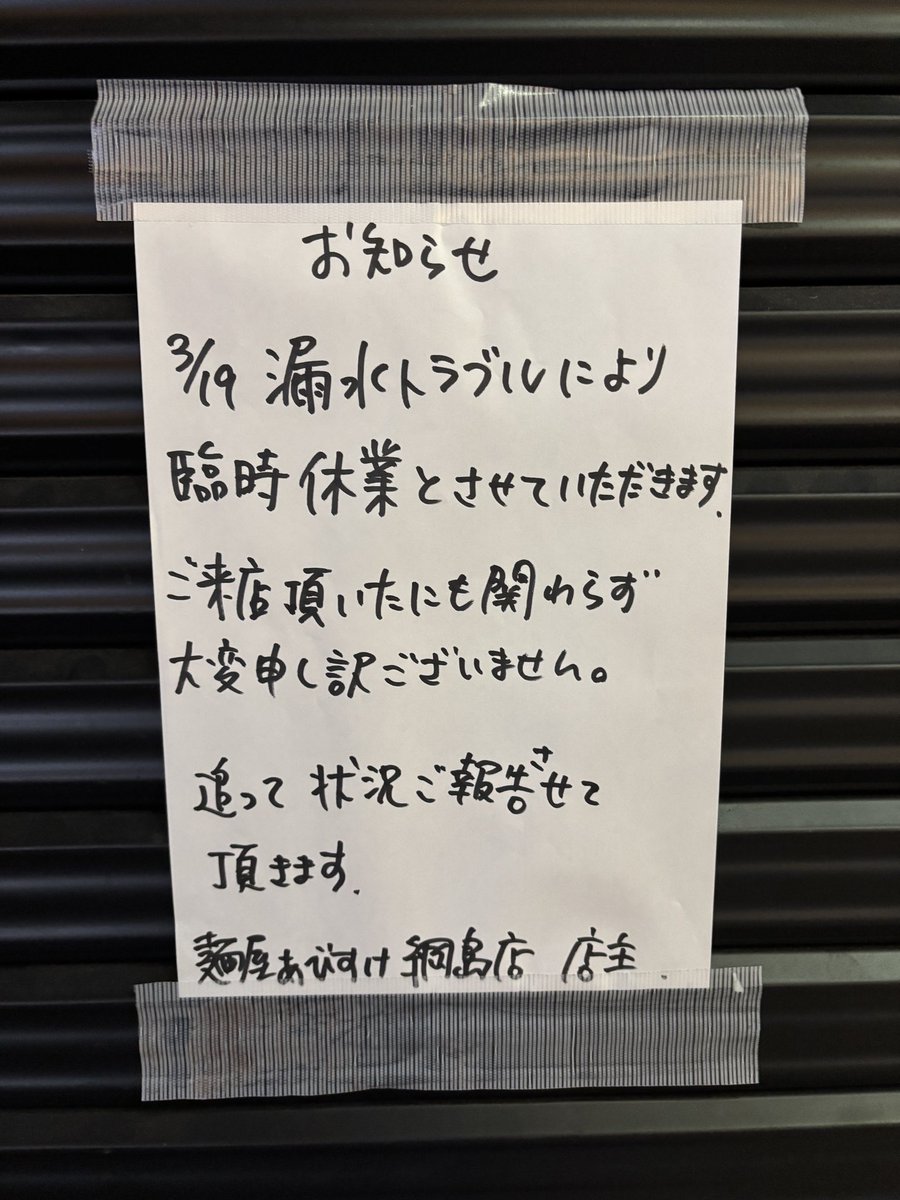 お知らせ
3/19 漏水トラブルにより
臨時休業とさせていただきます.
ご来店頂いたにも関わらず
大変申し訳ございません。
追って状況ご報告させて
頂きます.
麺屋あびすけ 綱島店 店主.